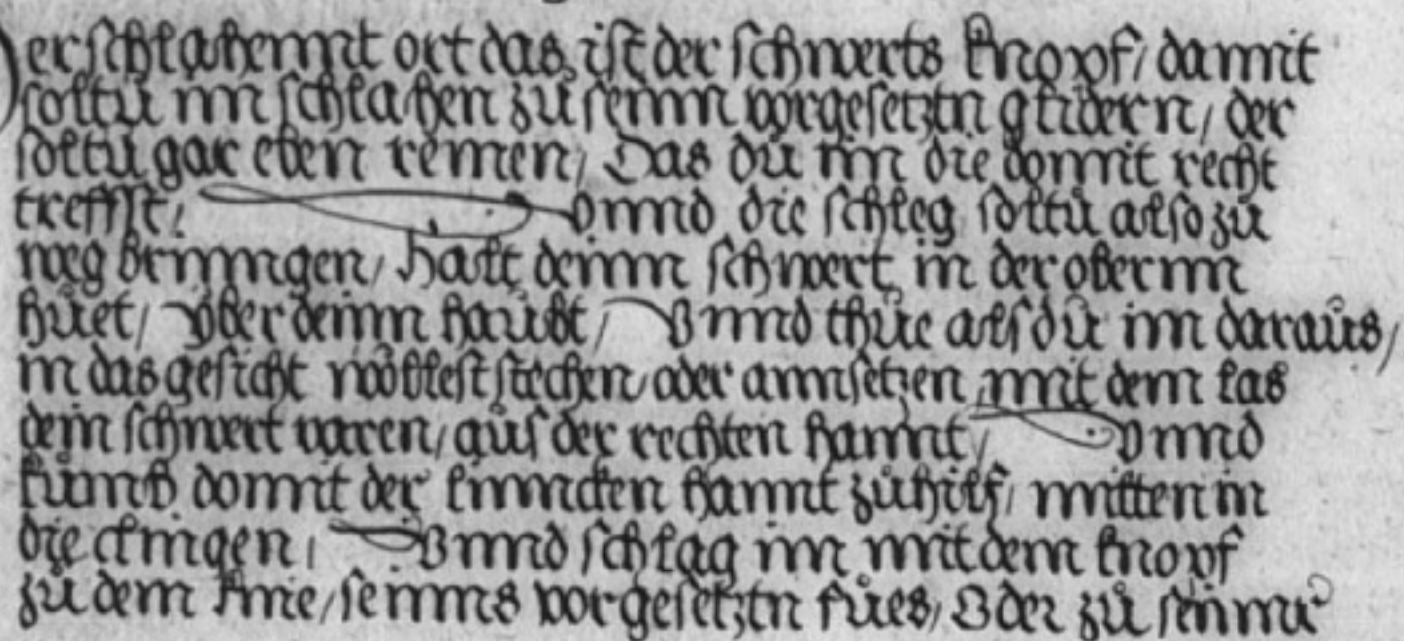 Der schlahennt ort das ist der schwerts knopf/ damit
soltu im schlahen zů seinn vorgesetztn glidern/ der
soltu gar eben remen/ Das dů im die domit recht
treffst/ Vnnd die schleg soltu also zů
weg brinngen/ Halt deinn schwert in der obernn
hůet/ vber deinn haůbt/ Vnnd thůe als dů im daraůs/
in das gesicht wöllest stechen/ oder annsetzen/ mit dem las
dein schwert varen/ aůs der rechten hannt/ Vnnd
kůmb domit der linncken hannt zůhilf/ mitten in
die clingen/ Vnnd schlag im mit dem knopf
zů dem knie/ seinns vorgesetztn fůes/ Oder zů seinnr